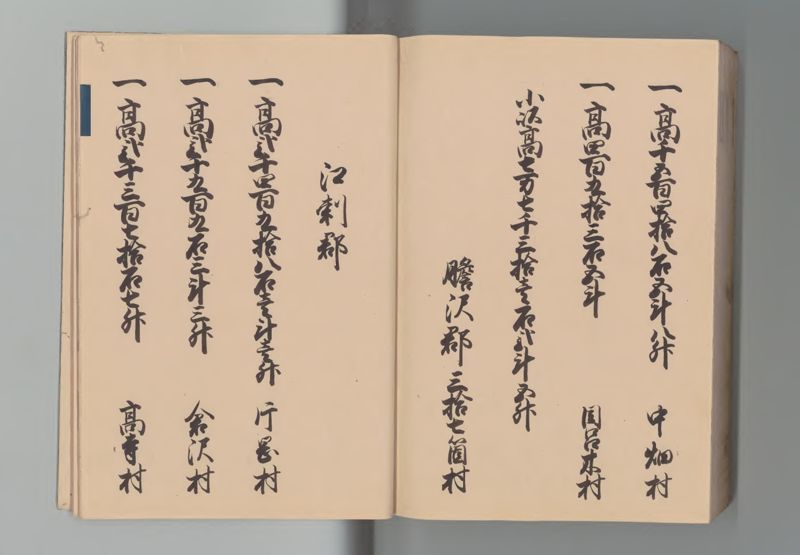 一 高千五百四拾八石五斗八升 中畑村
一 高四百九拾三石五斗 目呂木村
小以高七万七千三拾壱石弐斗五升
膽沢郡 三拾七箇村
江刺郡
一 高弐千四百九拾八石壱斗壱升 片岡村
一 高弐千九百九石三斗三升 倉沢村
一 高弐千三百七拾石七升 高寺村